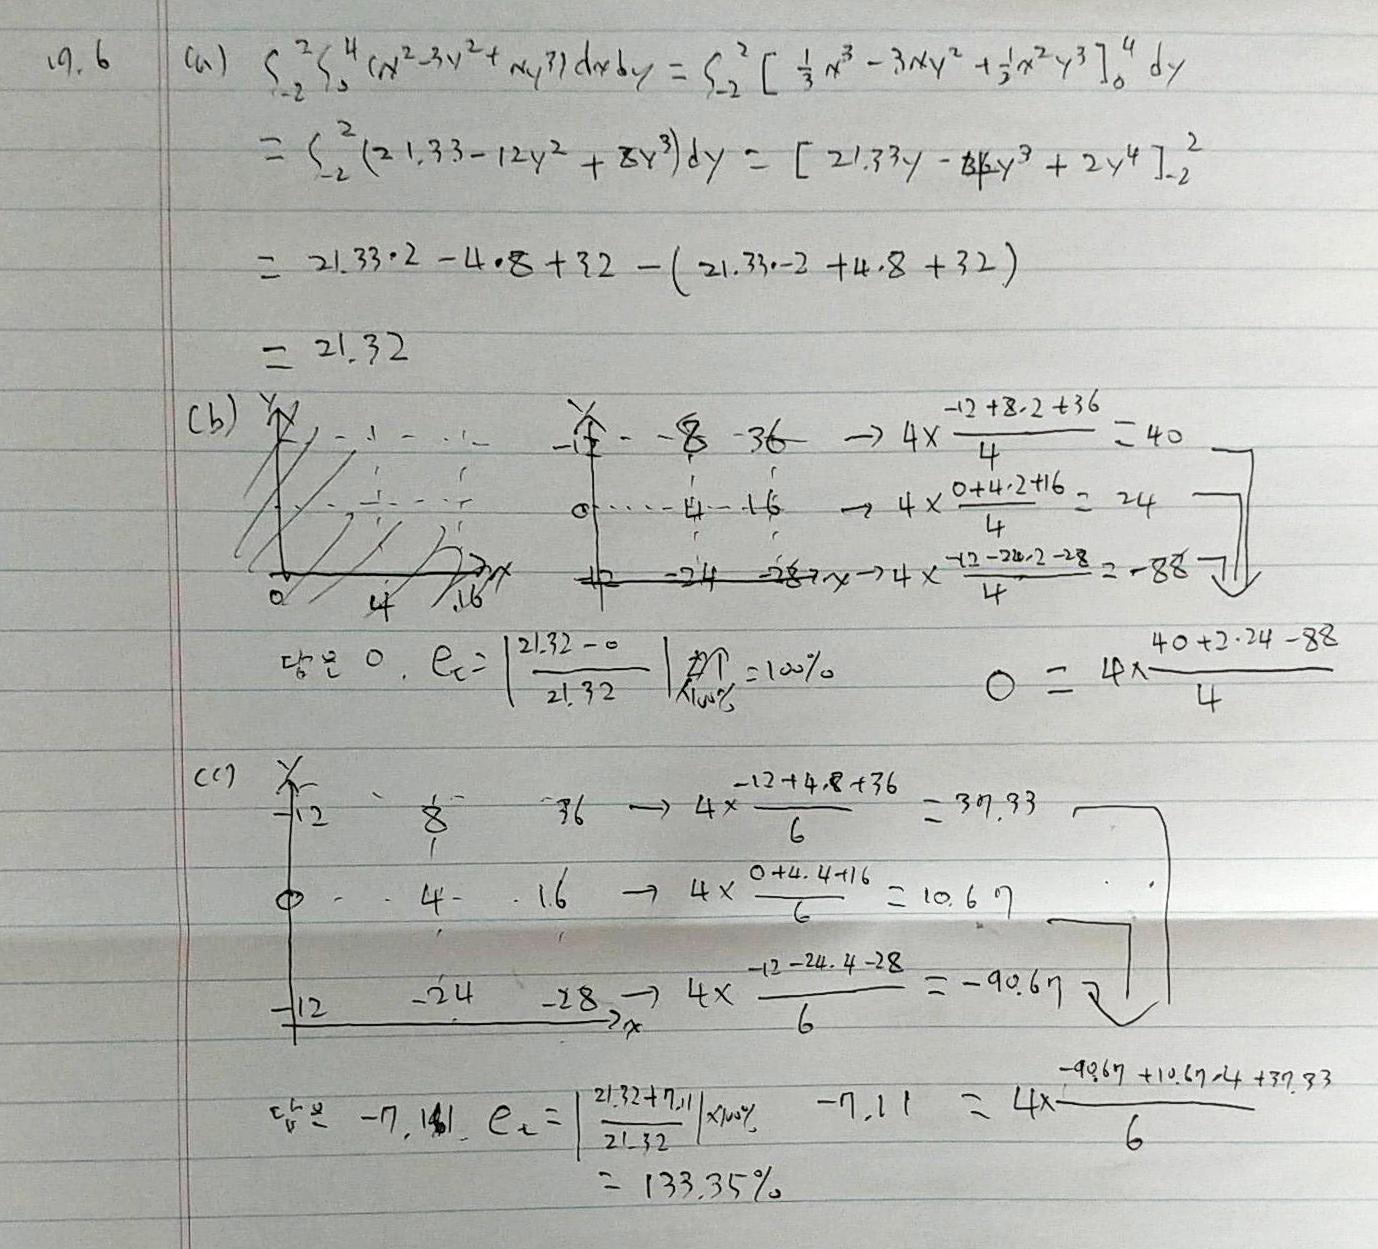 19.6 (a) ∫₋₂² ∫₀⁴ (x² - 3y² + xy³) dxdy = ∫₋₂² [ 1/3 x³ - 3xy² + 1/2 x²y³ ]₀⁴ dy
= ∫₋₂² (21.33 - 12y² + 8y³) dy = [ 21.33y - 4y³ + 2y⁴ ]₋₂²
= 21.33·2 - 4·8 + 32 - ( 21.33·-2 + 4·8 + 32 )
= 21.32
(b) y x
0 4 16 x
y
-12 -8 36 → 4 × (-12 + 8·2 + 36)/4 = 40
0 4 16 → 4 × (0 + 4·2 + 16)/4 = 24
-12 -24 -28 x → 4 × (-12 - 24·2 - 28)/4 = -88
답은 0. eₜ = | (21.32 - 0)/21.32 | ×100% = 100%
0 = 4 × (40 + 2·24 - 88)/4
(c) y
-12 8 36 → 4 × (-12 + 4·8 + 36)/6 = 37.33
0 4 16 → 4 × (0 + 4·4 + 16)/6 = 10.67
-12 -24 -28 → 4 × (-12 - 24·4 - 28)/6 = -90.67
x
답은 -7.11. eₜ = | (21.32 + 7.11)/21.32 | ×100%
-7.11 = 4 × (-90.67 + 10.67·4 + 37.33)/6
= 133.35%